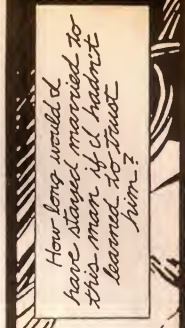 How long would I
have stayed married to
this man if I hadn't
learned to trust
him?